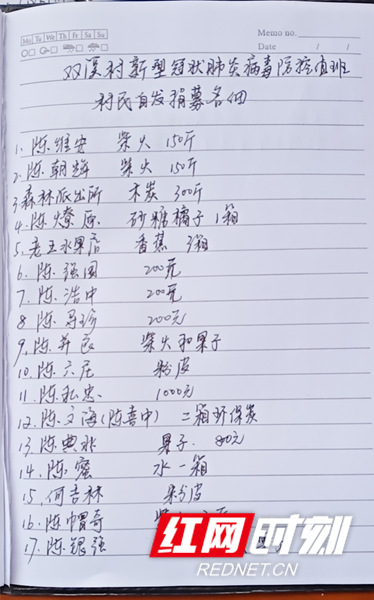 Mo Tu We Th Fr Sa Su
Memo no.
Date / /
双溪村新型冠状肺炎病毒防控值班
村民自发捐募名细
1、陈维安 柴火 150斤
2、陈朝辉 柴火 150斤
3森林派出所 木炭 300斤
4、陈燎原 砂糖橘子1箱
5、老五水果店 香蕉 3箱
6、陈强国 200元
7、陈浩中 200元
8、陈 200元
9、陈 柴火和果子
10、陈六庄 粉皮
11、陈私忠 1000元
12、陈文海(陈喜中) 二箱环保炭
13、陈典 果子. 80元
14、陈蜜 水一箱
15、何吉林 粉皮
16、陈帽哥
17、陈银强
红网时刻
REDNET.CN